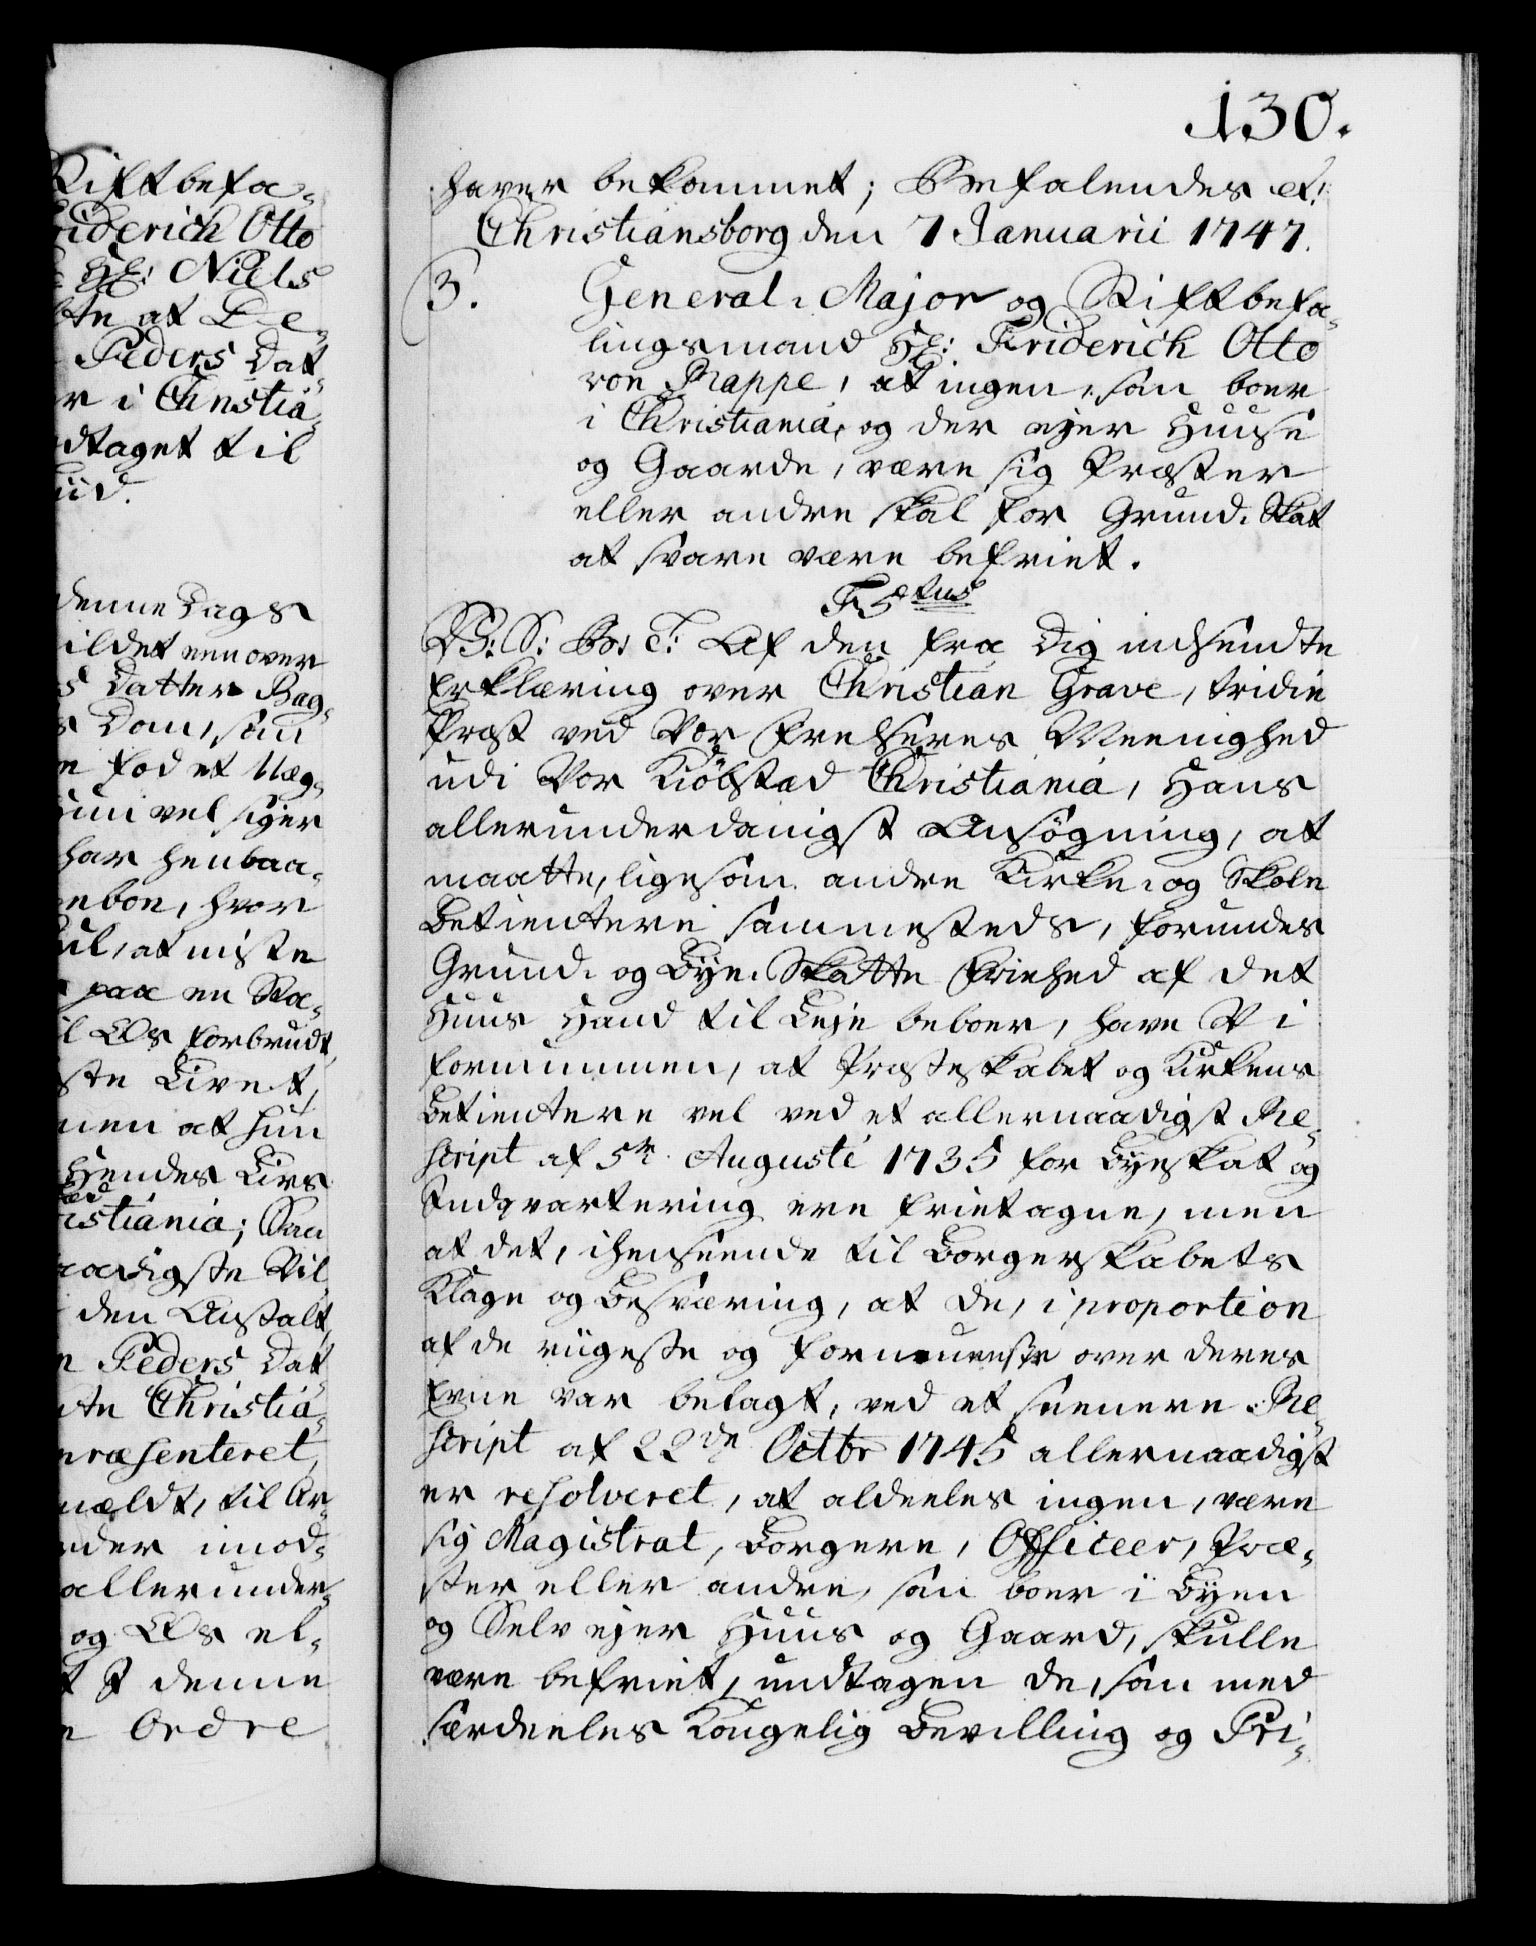 Stiftbefa-
riderich Otto
Hr: Niels
bte at De-
Peders Dat-
r i Christia-
dtaget til
iid.
denne Dags
ildet een over
s Datter Bag-
s Dom, som
n fød et Uæg-
hun vel siger
har henbaa-
nbon, hvor
ul, at miste
paa en Sta-
l Os forbrudt,
ste Livet,
men at hun
Hendes Livs
ristiania; Saa
naadigste Vil-
den Anstalt,
n Peders Dat-
te Christia-
præsenteret,
mældt, til Ar-
eder imod-
allerunder-
og Os el-
t I denne
e Ordre
130.
haver bekommet; Befalendes etc:
Christiansborg den 7 Januarii 1747.
3. General-Major og Stiftbefa-
lingsmand Hr: Friderich Otto
von Rappe, at ingen, som boer
i Christiania, og der ejer Huuse
og Gaarde, være sig Præster
eller andre skal for Grund-Skat
at svare være befriet.
F5tus
V: S: Bo: T: Af den fra Dig indsendte
Erklæring over Christian Grave, tridie
Præst ved Vor Frelseres Meenighed
udi Vor Kiöbstad Christiania, Hans
allerunderdanigst Ansögning, at
maatte, ligesom andre Kirke- og Skole
Betientere sammesteds, forundes
Grund- og Bye-Skatte Friehed af det
Huus Hand til Leje beboer, have Vi
fornummen, at Præsteskabet og Kirkens
Betientere vel ved et allernaadigst Re-
script af 5te Augusti 1735 for Byeskat og
Indqvartering ere frietagne, men
at det, i henseende til Borgerskabets
Klage og Besværing, at De, i proportion
af de riigeste og fornemste over deres
Evne var belagt, ved et seenere Re-
script af 22de Octbr 1745 allernaadigst
er resolveret, at aldeeles ingen, være
sig Magistrat, Borgere, Officeer, Præ-
ster eller andre, som boer i Byen
og Selv ejer Huus og Gaard, skulle
være befriet, undtagen de, som med
særdeeles Kongelig Bevilling og Pri-